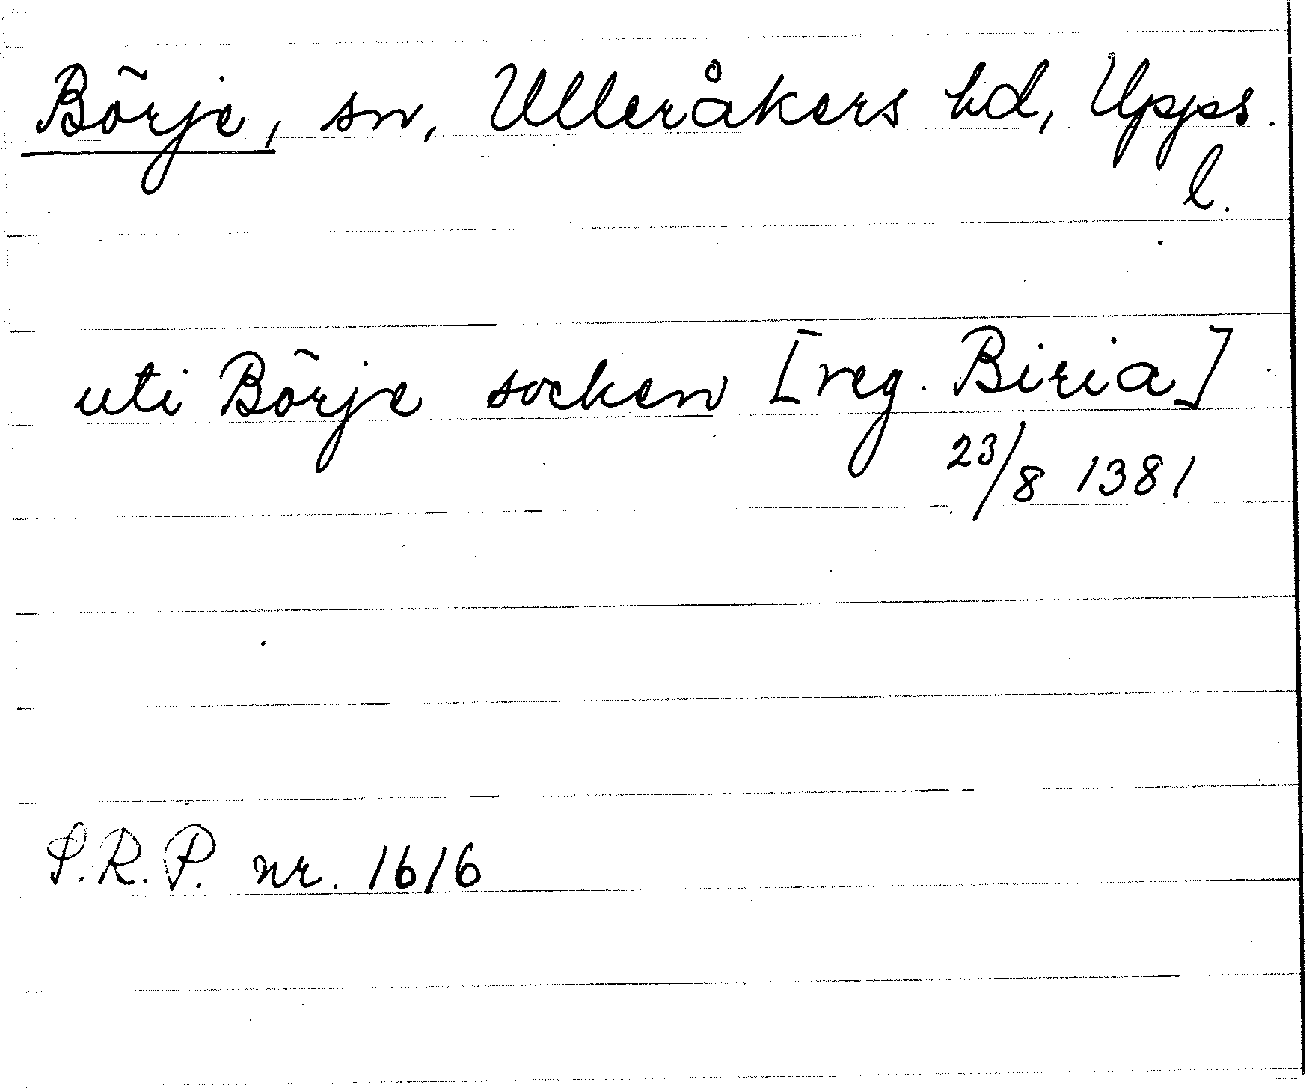 Börje, sn, Ulleråkers hd, Upps.
l.
uti Börje socken [reg. Biria]
23/8 1381
S.R.P. nr. 1616